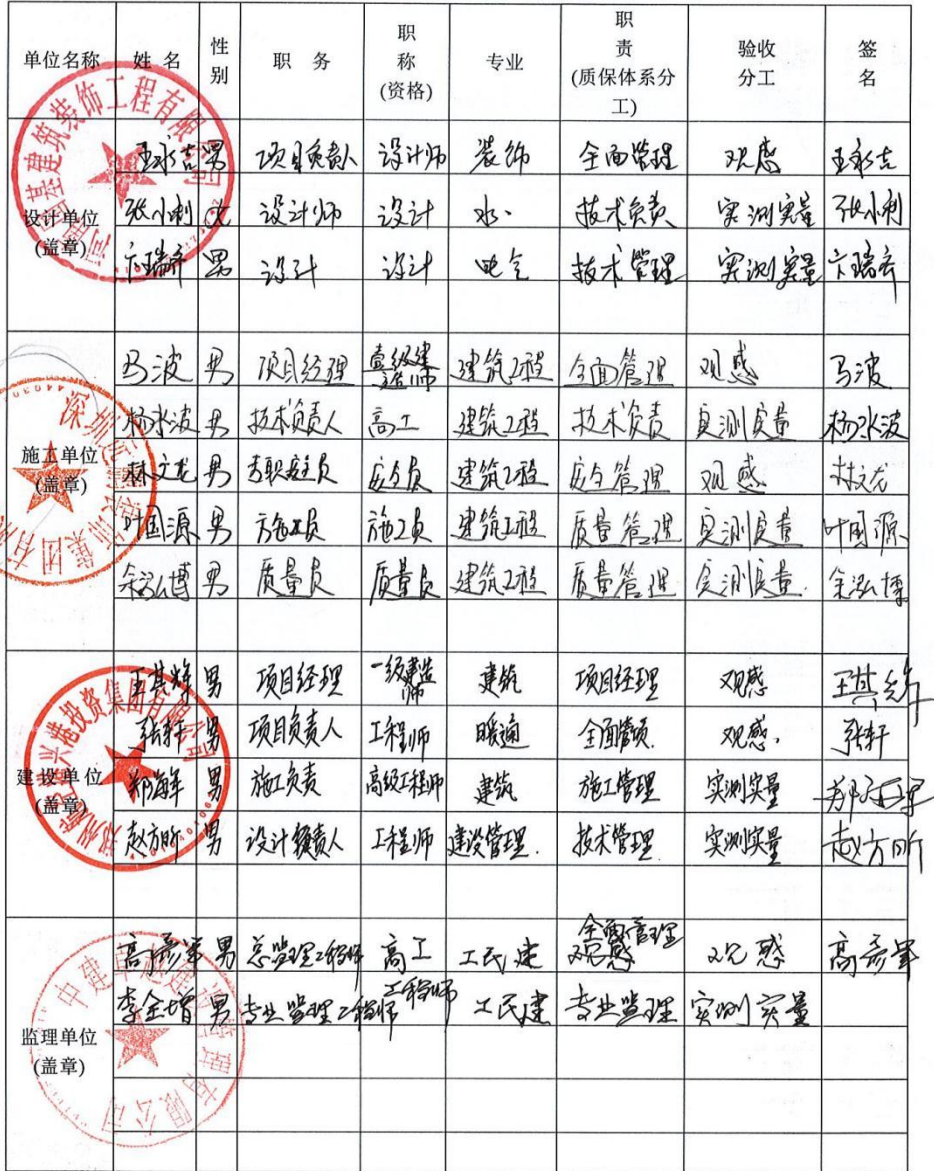 单位名称 姓名 性别 职务 职称(资格) 专业 职责(质保体系分工) 验收分工 签名
设计单位(盖章)
王永吉 男 项目负责人 设计师 装饰 全面管理 观感 王永吉
张小利 女 设计师 设计 水 技术负责 实测实量 张小利
卞瑞奇 男 设计 设计 电气 技术管理 实测实量 卞瑞奇
施工单位(盖章)
马波 男 项目经理 壹级建造师 建筑工程 全面管理 观感 马波
杨水波 男 技术负责人 高工 建筑工程 技术负责 实测实量 杨水波
林文龙 男 专职安全员 安全员 建筑工程 安全管理 观感 林文龙
叶国源 男 施工员 施工员 建筑工程 质量管理 实测实量 叶国源
余泓博 男 质量员 质量员 建筑工程 质量管理 实测实量 余泓博
建设单位(盖章)
王其锋 男 项目经理 一级建造师 建筑 项目经理 观感
张轩 男 项目负责人 工程师 暖通 全面管理 观感 张轩
郑海军 男 施工负责 高级工程师 建筑 施工管理 实测实量 郑海军
赵方昕 男 设计负责人 工程师 建设管理 技术管理 实测实量 赵方昕
监理单位(盖章)
高彦军 男 总监理工程师 高工 工民建 全面管理 观感 高彦军
李金增 男 专业监理工程师 工程师 工民建 专业监理 实测实量